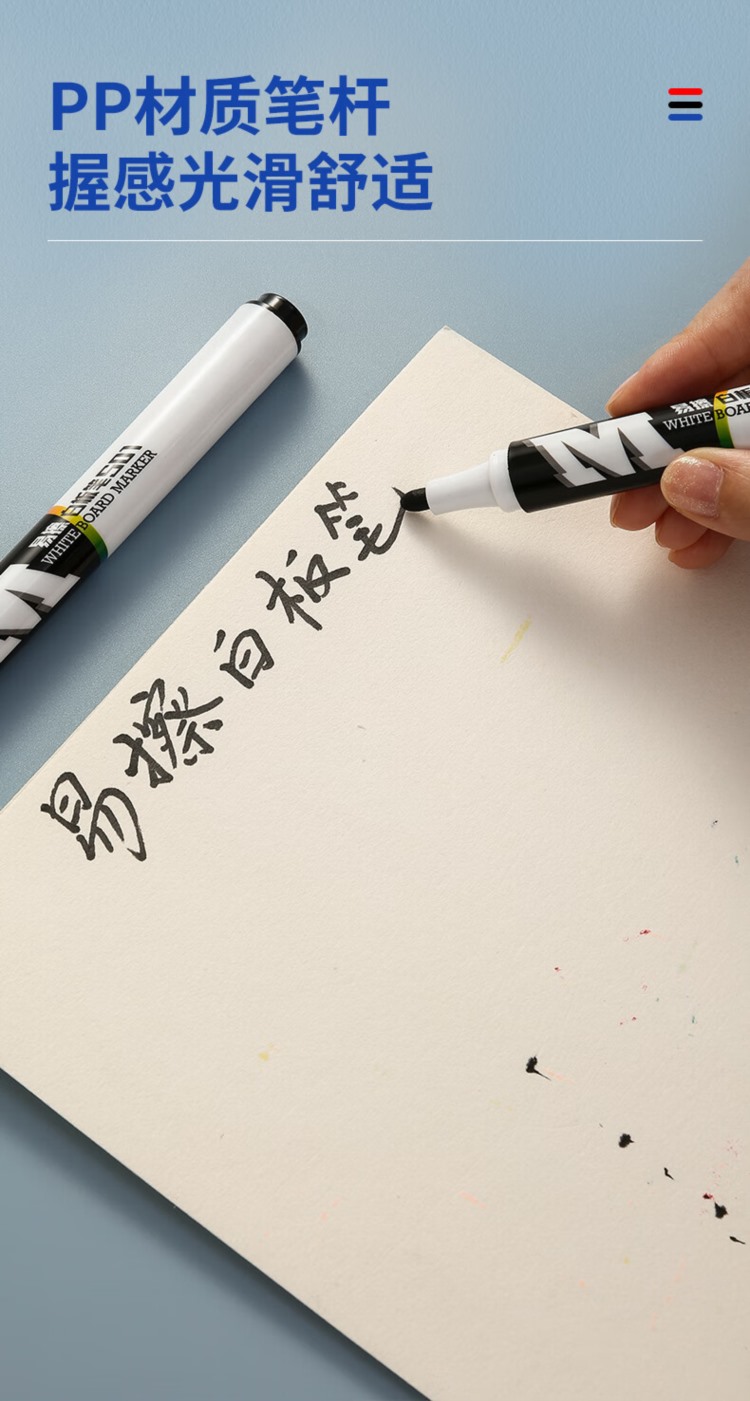 PP材质笔杆
握感光滑舒适
易擦 白板笔S01
WHITE BOARD MARKER
M
易擦 白板
WHITE BOAR
M
易擦白板笔